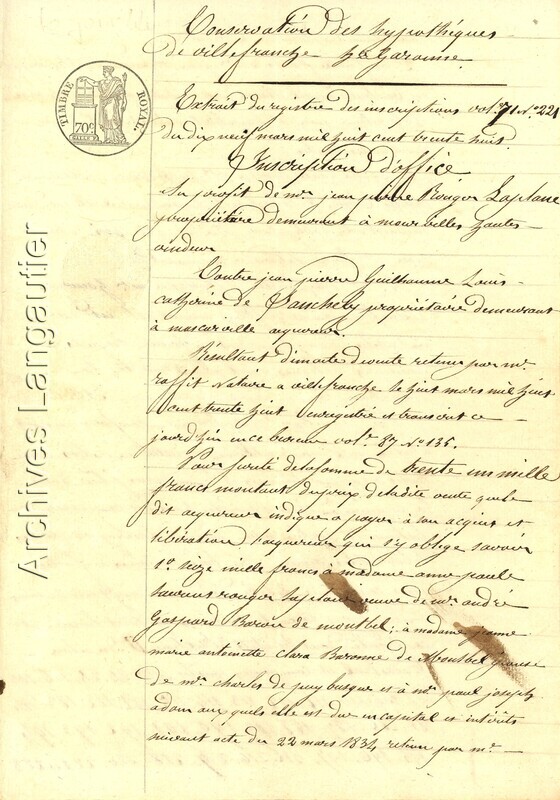 Conservation des hypothéques
de villefranche hte Garonne
TIMBRE ROYAL
70c
Extrait du registre des inscriptions vol. 71 No. 221
du dix neuf mars mil huit cent trente huit.
Inscription d'office
Au profit de mr. jean pierre Rouger Laplane
propriétaire demeurant à mourvilles hautes
vendeur
Contre jean pierre Guilhaume Louis
catherine de propriétaire demeurant
à mascarville aquereur.
Résultant d'un acte de vente retenu par mr.
raffit Notaire a villefranche le huit mars mil huit
cent trente huit enregistré et transcrit ce
jourd'hui en ce bureau vol. 87 No. 135.
Pour sureté de la somme de trente un mille
francs montant du prix de ladite vente que le
dit acquereur indique a payer à son acquit et
libération l'acquereur qui s'y oblige savoir
1o. Seize mille francs à madame anne paule
rouger Laplane veuve de mr. andré
Gaspard Baron de montbel; à madame jeanne
marie antoinette clara Baronne de Montbel épouse
de mr. charles de puybusque et à mr. paul joseph
adam aux quels elle est due en capital et intérêts
suivant acte du 22 mars 1834 retenu par mr.
Archives Langautier